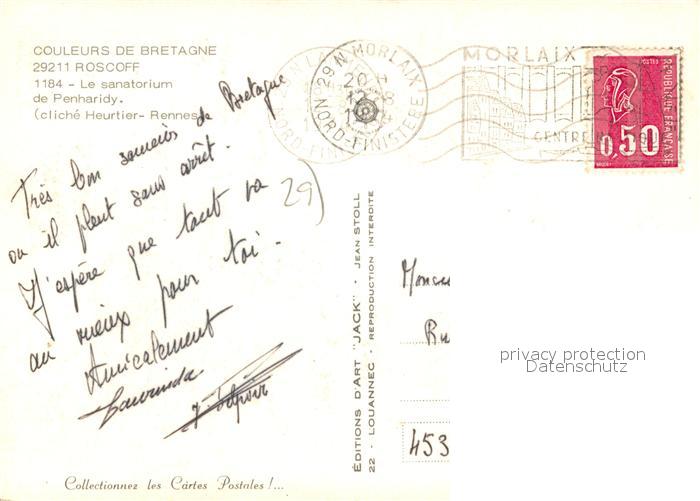 COULEURS DE BRETAGNE
29211 ROSCOFF
1184 - Le sanatorium
de Penharidy.
(cliché Heurtier- Rennes)
29 N MORLAIX
NORD-FINISTÈRE
MORLAIX
CENTRE
POSTES
REPUBLIQUE FRANÇAISE
0,50
Très bon souvenir de Bretagne
ou il pleut sans arrêt.
J'espère que tout va
au mieux pour toi.
Amicalement
29)
ÉDITIONS D'ART "JACK" - JEAN STOLL
22 - LOUANNEC - REPRODUCTION INTERDITE
privacy protection
Datenschutz
453
Collectionnez les Cartes Postales !...